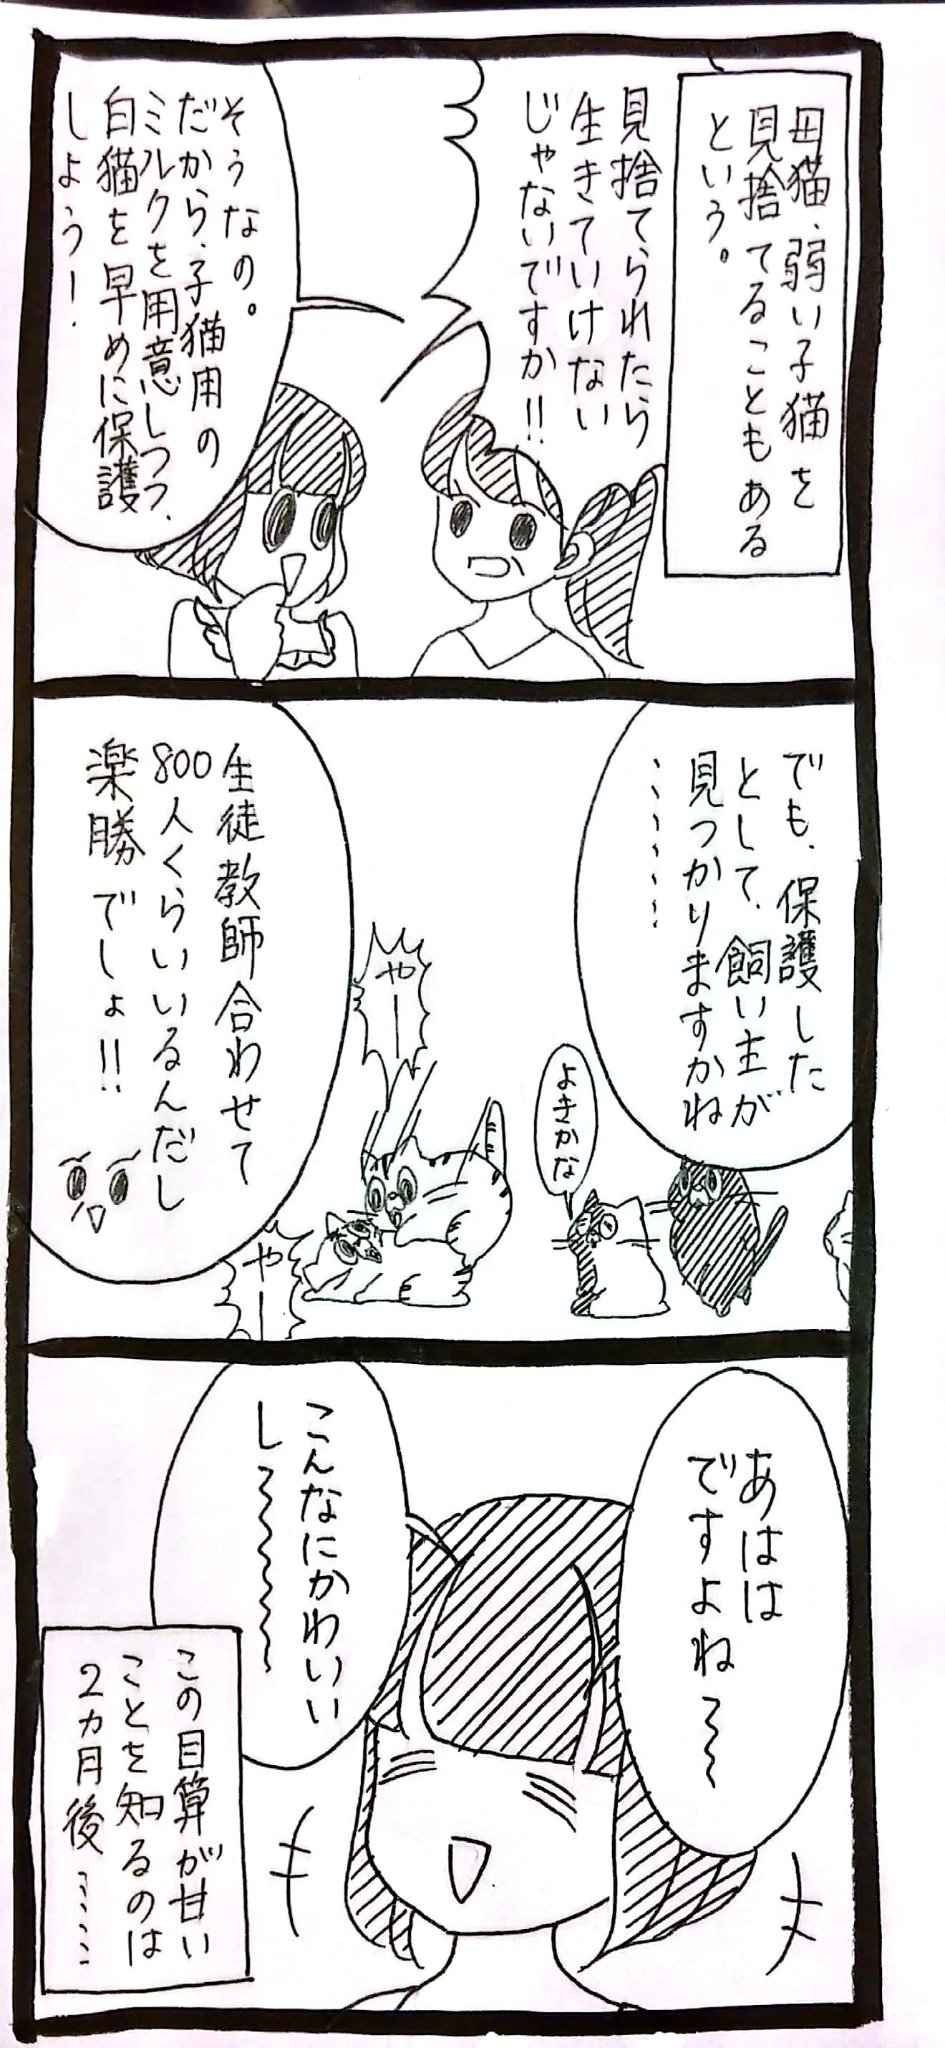 母猫、弱い子猫を
見捨てることもある
という。
見捨てられたら
生きていけない
じゃないですか!!
そうなの。
だから、子猫用の
ミルクを用意しつつ、
白猫を早めに保護
しよう!
でも、保護した
として、飼い主が
見つかりますかね
、、、、、、
よきかな
やー
やー
生徒教師合わせて
800人くらいいるんだし
楽勝でしょ!!
あはは
ですよね〜〜
こんなにかわいい
し〜〜〜〜
この目算が甘い
ことを知るのは
2ヵ月後、、、、